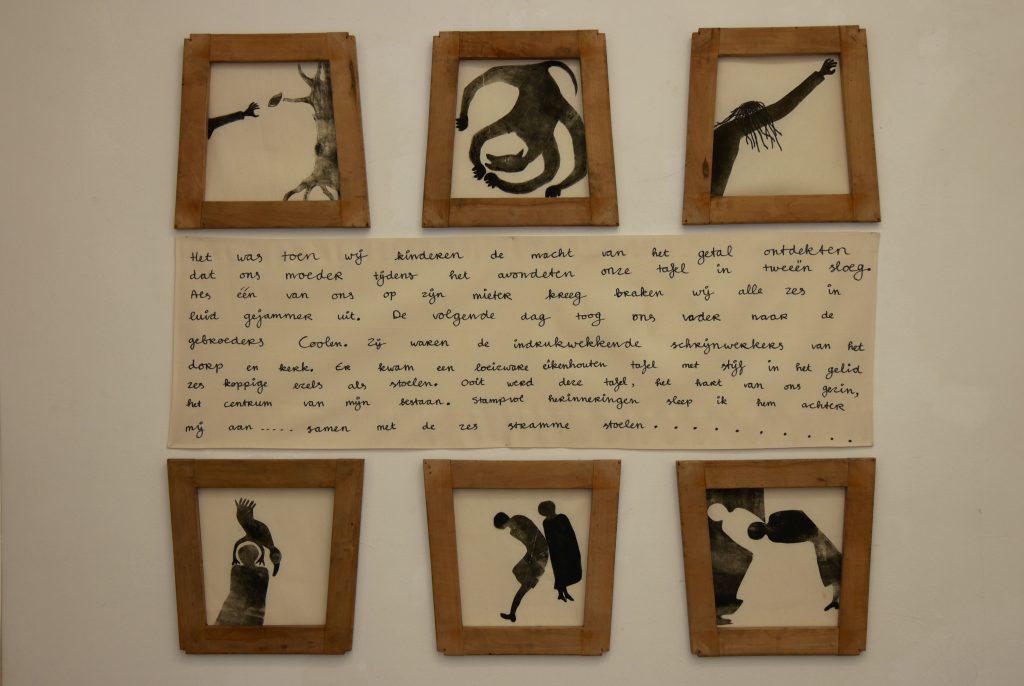 Het was toen wij kinderen de macht van het getal ontdekten
dat ons moeder tijdens het avondeten onze tafel in tweeën sloeg.
Als één van ons op zijn mieter kreeg braken wij alle zes in
luid gejammer uit. De volgende dag toog ons vader naar de
gebroeders Coolen. Zij waren de indrukwekkende schrijnwerkers van het
dorp en kerk. Er kwam een loeizware eikenhouten tafel met stijf in het gelid
zes koppige ezels als stoelen. Ooit werd deze tafel, het hart van ons gezin,
het centrum van mijn bestaan. Stampvol herinneringen sleep ik hem achter
mij aan ..... samen met de zes stramme stoelen . . . . . . . . .